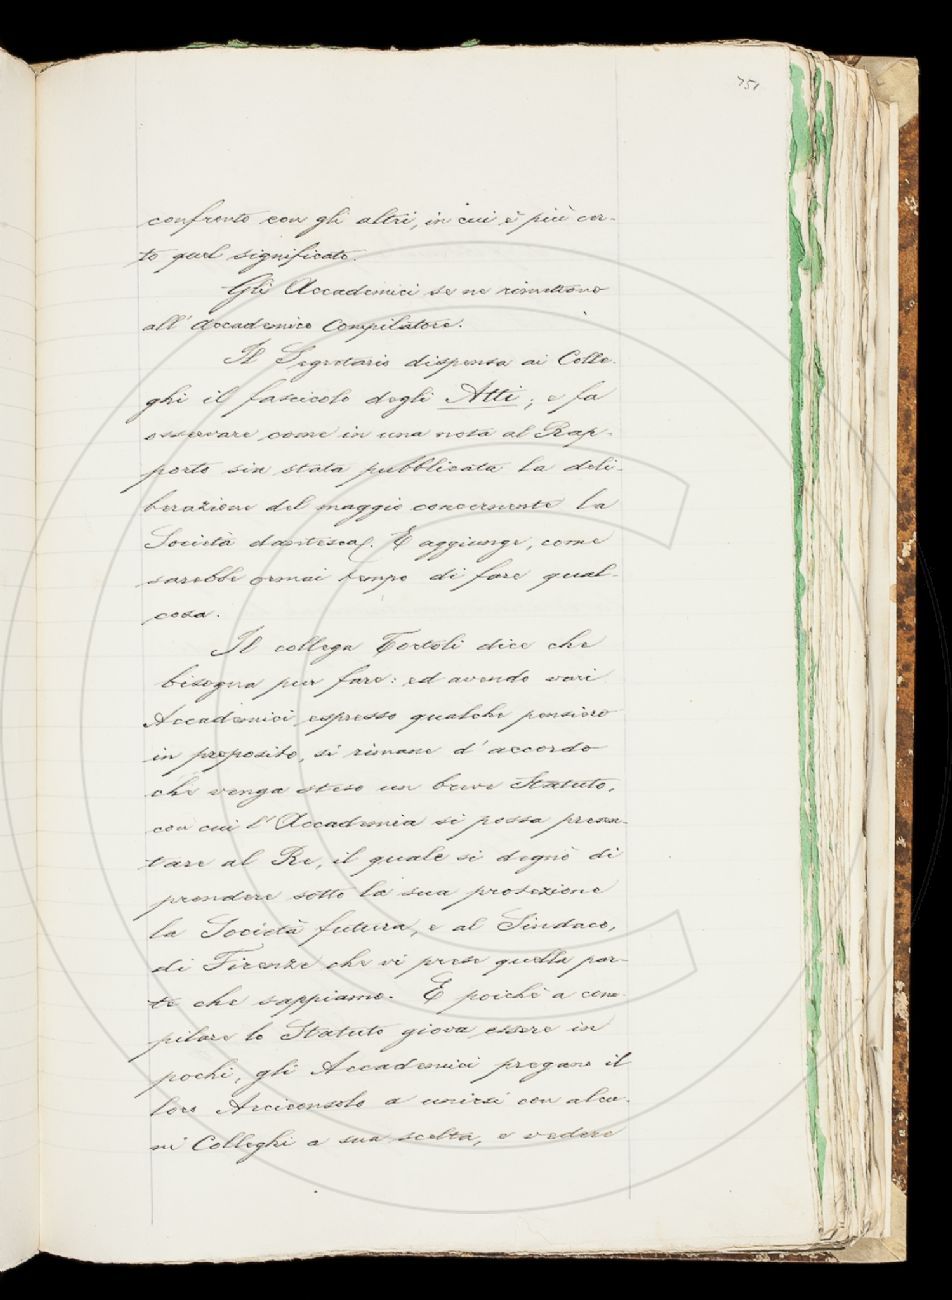 751
confronto con gli altri, in cui è più cer-
to quel significato.
Gli Accademici se ne rimettono
all'Accademico Compilatore.
Il Segretario dispensa ai Colle-
ghi il fascicolo degli Atti; e fa
osservare come in una nota al Rap-
porto sia stata pubblicata la deli-
berazione del maggio concernente la
Società dantesca. E aggiunge, come
sarebbe ormai tempo di fare qual-
cosa.
Il collega Tortoli dice che
bisogna pur fare: ed avendo vari
Accademici espresso qualche pensiero
in proposito, si rimane d'accordo
che venga steso un breve Statuto,
con cui l'Accademia si possa presen-
tare al Re, il quale si degnò di
prendere sotto la sua protezione
la Società futura, e al Sindaco,
di Firenze che vi prese quella par-
te che sappiamo. E poichè a com-
pilare lo Statuto giova essere in
pochi, gli Accademici pregano il
loro Arciconsolo a unirsi con alcu-
ni Colleghi a sua scelta, e vedere